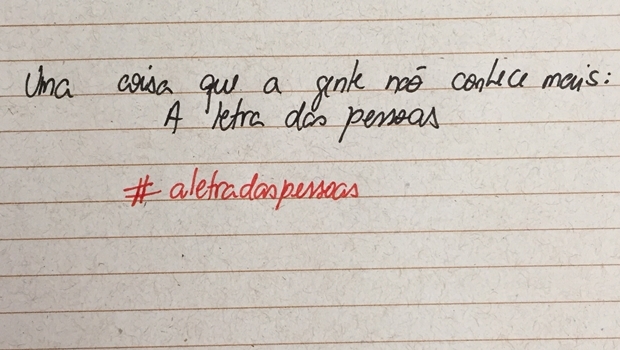 Uma coisa que a gente não conhece mais:
A letra das pessoas
# aletradaspessoas